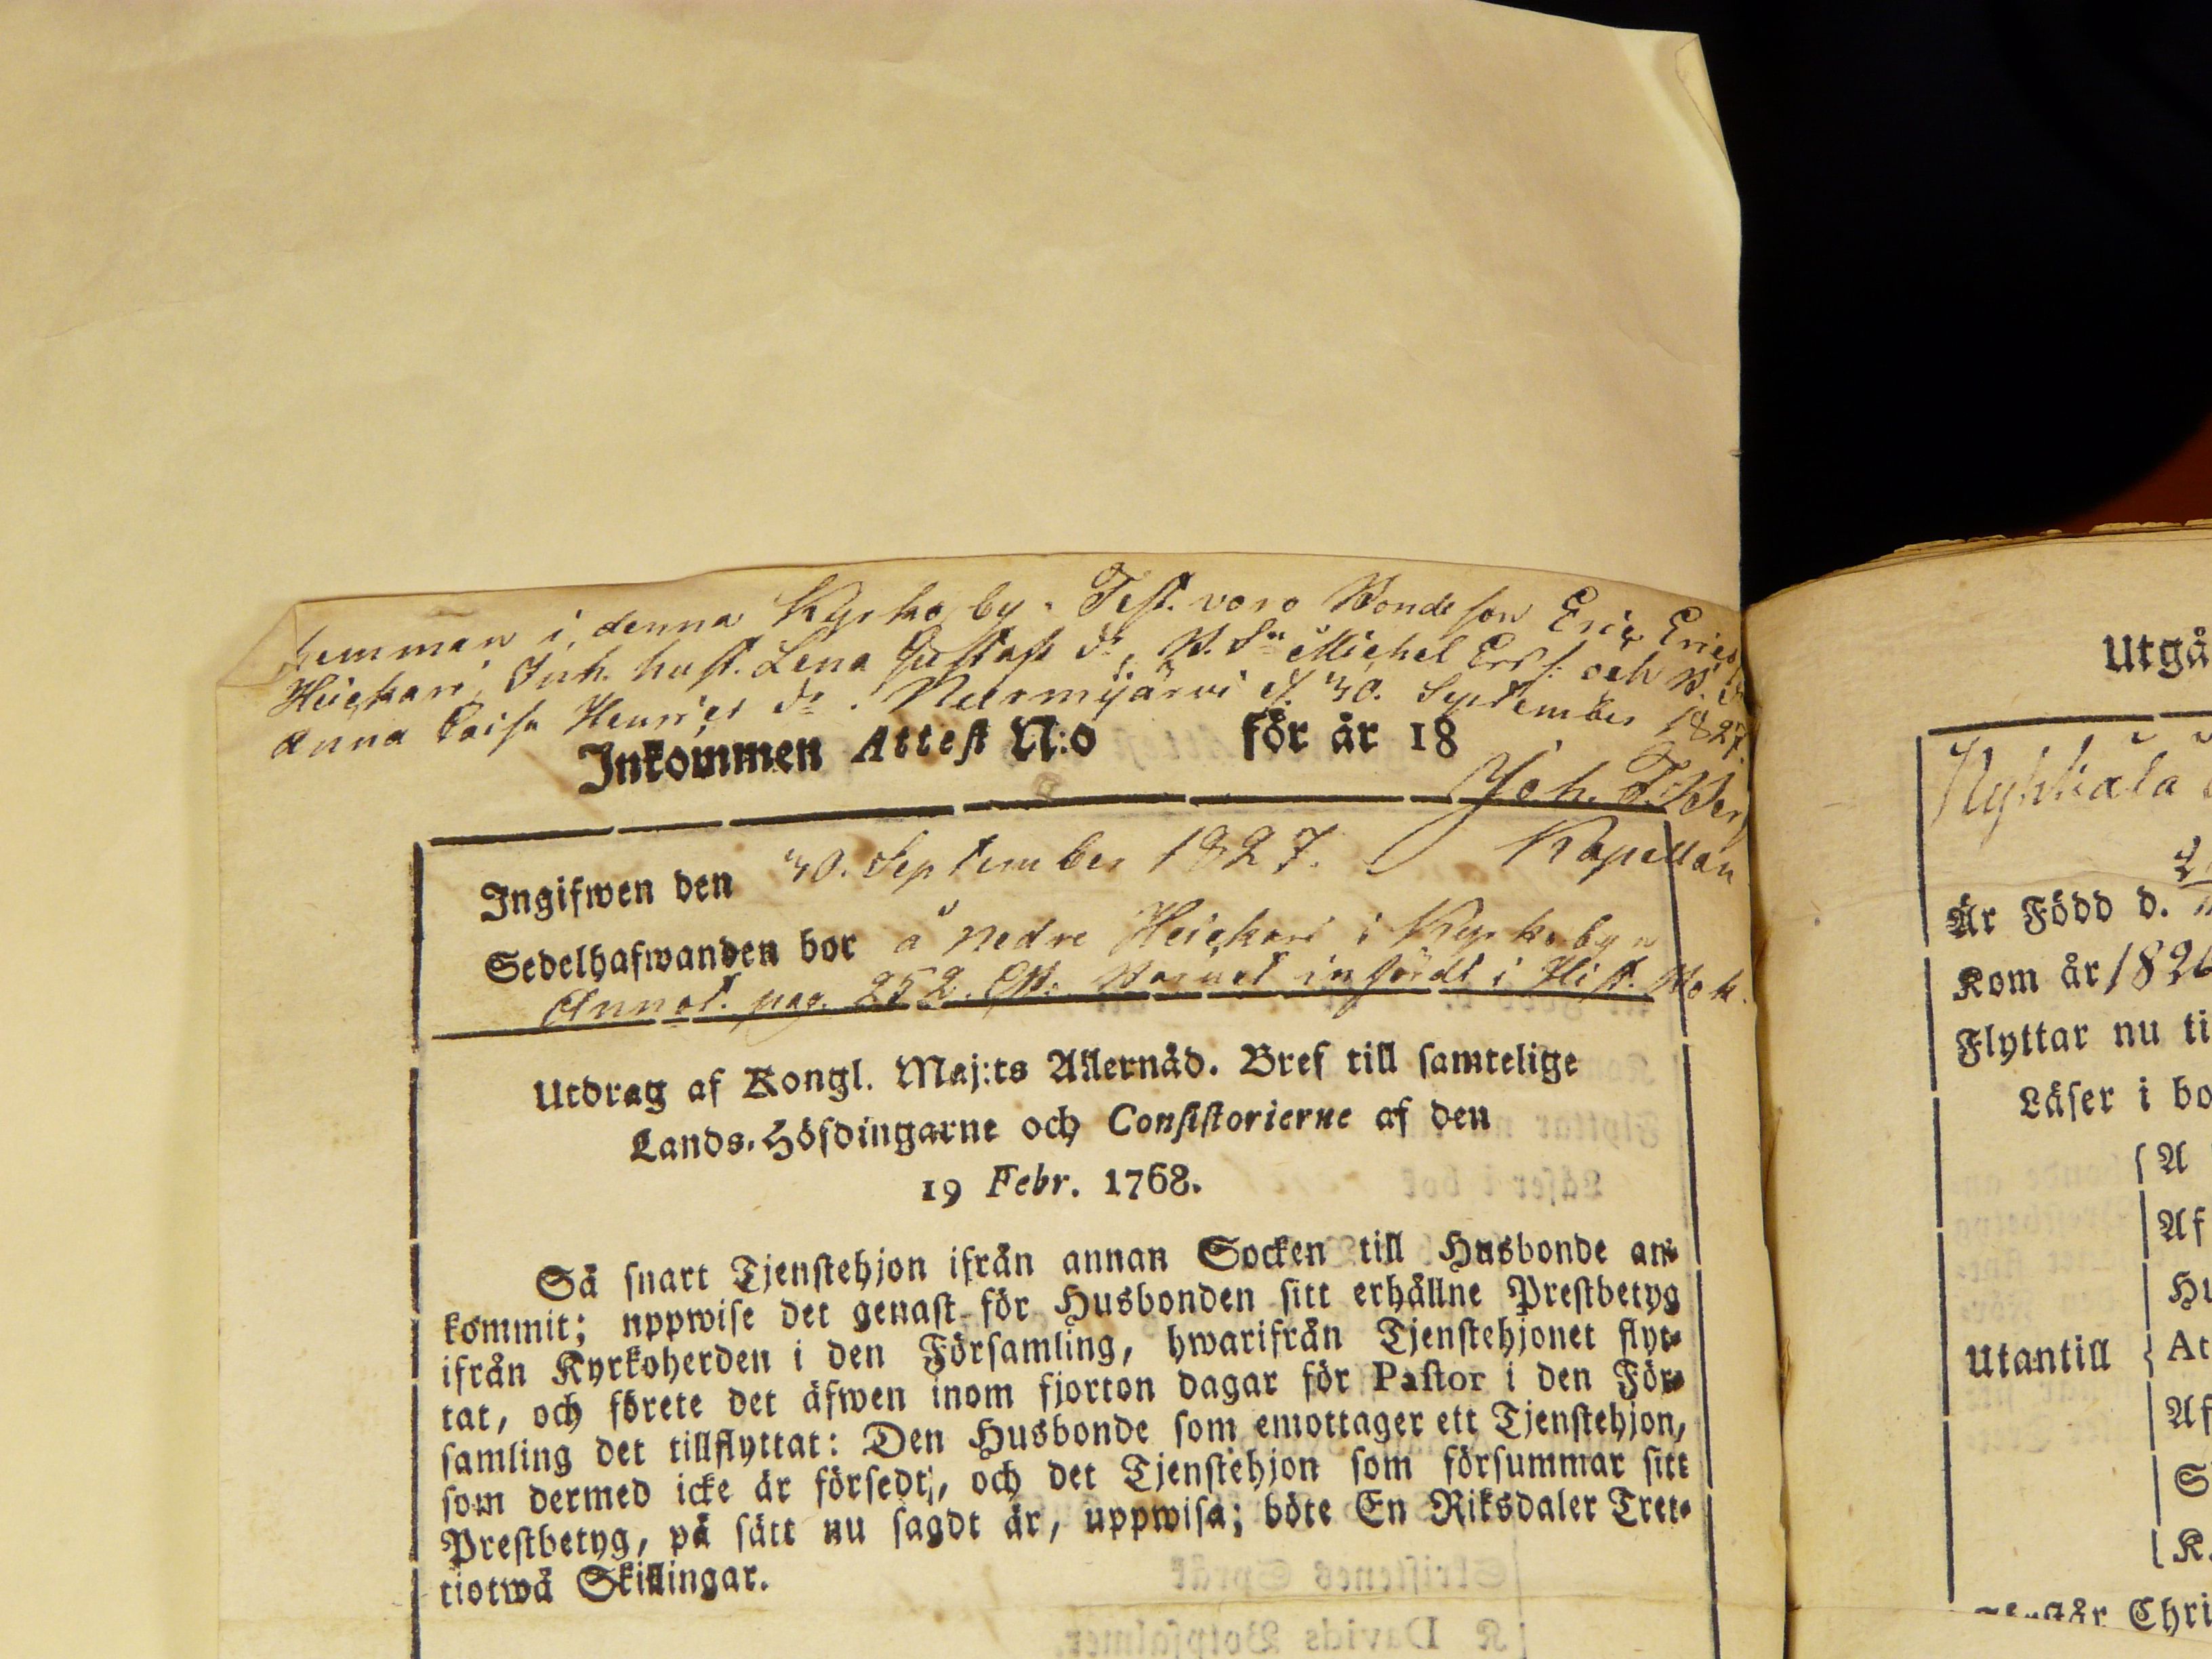 hemman i denna Kyrkoby. Test. voro Bondeson Eric Erics
Heickari, Inh. hust. Lena Gustafs dr, B. Sn Michel Ers s. och B. dr
Anna Caisa Henrics dr. Nurmijärvi d. 30. September 1827.
Inkommen Attest N:o för år 18
Joh. F. Ber
Kapellan
Ingifwen den 30. September 1827.
Sedelhafwanden bor å Nedre Heickari i Kyrkobyn
Annot. pag. 252. infördt i Hist. Bok.
Utdrag af Kongl. Maj:ts Allernåd. Bref till samtelige
Lands-Höfdingarne och Consistorierne af den
19 Febr. 1768.
Så snart Tjenstehjon ifrån annan Socken till Husbonde an-
kommit; uppwise det genast för Husbonden sitt erhållne Prestbetyg
ifrån Kyrkoherden i den Församling, hwarifrån Tjenstehjonet flyt-
tat, och förete det äfwen inom fjorton dagar för Pastor i den För-
samling det tillflyttat: Den Husbonde som emottager ett Tjenstehjon,
som dermed icke är försedt, och det Tjenstehjon som försummar sitt
Prestbetyg, på sätt nu sagdt är, uppwisa; böte En Riksdaler Tret-
tiotwå Skillingar.
Utgå
Är Född d.
Kom år 1826
Flyttar nu ti
Läser i bo
A
Af
Hu
Utantill
At
Af
S
K.
Chri